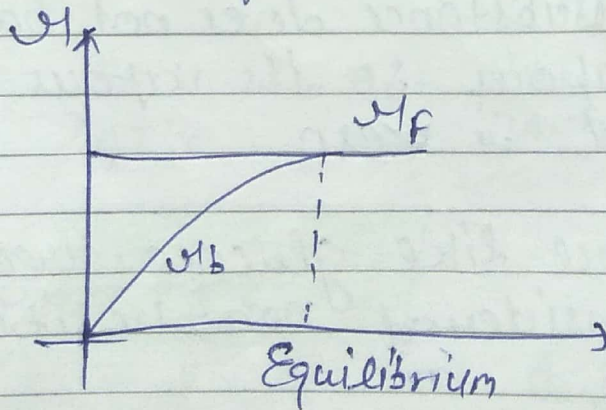 r
r_f
r_b
Equilibrium